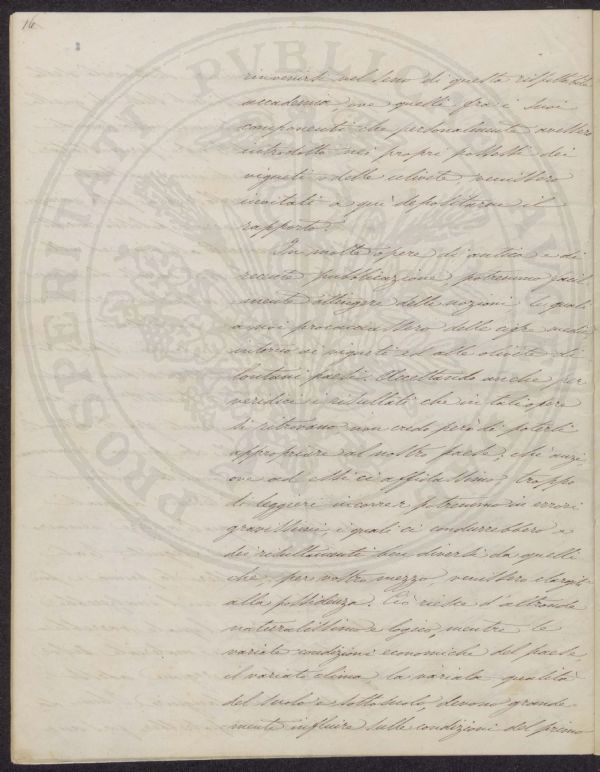 16
rinvenirli nel seno di questa rispettabile
accademia ove quelli fra i suoi
componenti che personalmente avessero
introdotto nei propri possessi dei
vigneti e delle olivete, venissero
invitati a qui depositarne il
rapporto.
In molte opere di antica e di
recente pubblicazione potremmo facil
mente attingere delle nozioni le quali
a noi procacciassero delle cifre medie
intorno ai vigneti ed alle olivete di
lontani paesi. Accettando anche per
veridici i risultati che in tali opere
si ritrovano non credo però di poterli
appropriare al nostro paese, chè anzi
ove ad essi ci affidassimo troppo
di leggieri incorrer potremmo in errori
gravissimi, i quali ci condurrebbero a
dei risultamenti ben diversi da quelli
che, per vostro mezzo, venissero elargiti
alla possidenza. Ciò riesce d'altronde
naturalissimo e logico, mentre le
variate condizioni economiche del paese,
il variato clima la variata qualità
del suolo e sottosuolo, devono grande-
mente influire sulle condizioni del primo
PROSPERITATI PVBLICAE